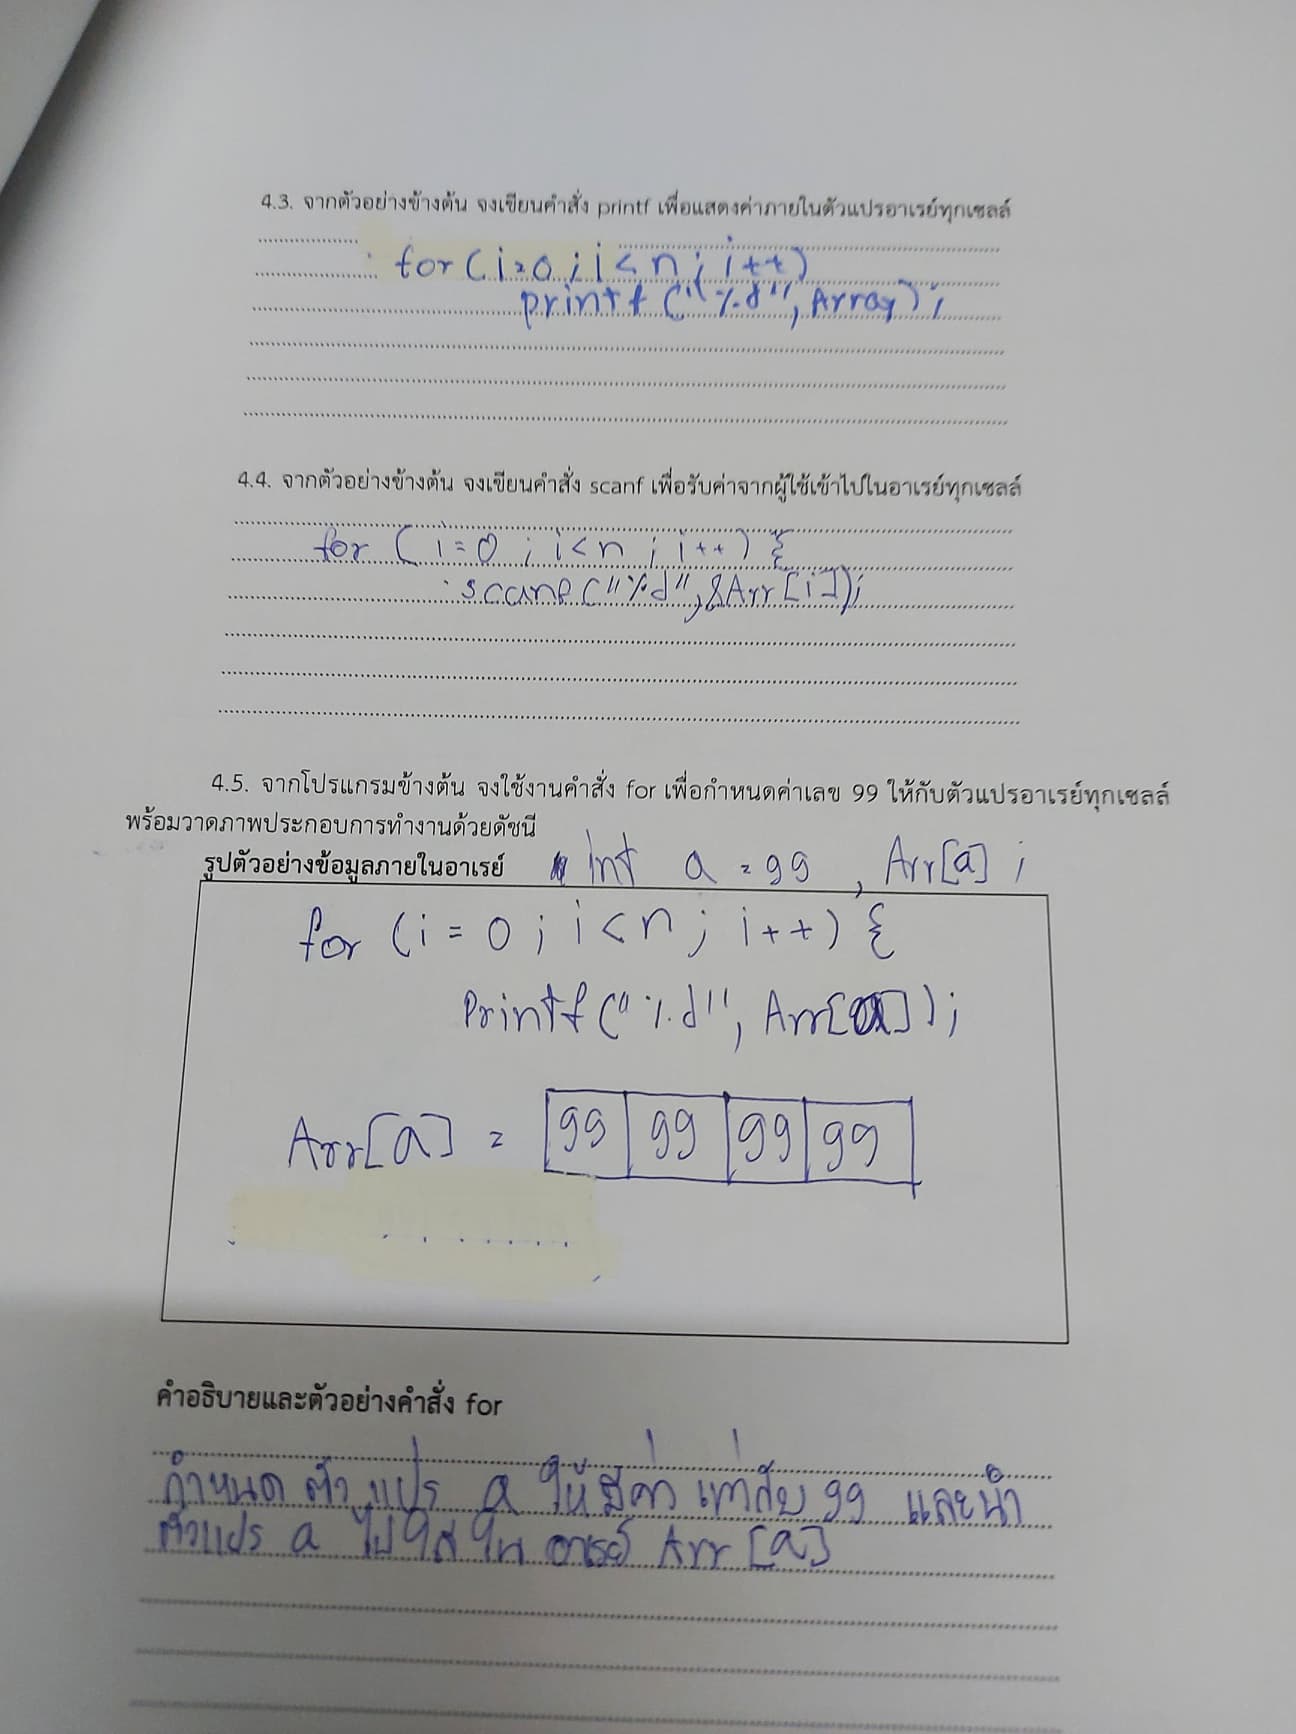 4.3. จากตัวอย่างข้างต้น จงเขียนคำสั่ง printf เพื่อแสดงค่าภายในตัวแปรอาเรย์ทุกเซลล์
for (i=0 ; i<n ; i++)
printf ("%d", Array);
4.4. จากตัวอย่างข้างต้น จงเขียนคำสั่ง scanf เพื่อรับค่าจากผู้ใช้เข้าไปในอาเรย์ทุกเซลล์
for (i=0 ; i<n ; i++) {
scanf ("%d", &Arr[i]);
4.5. จากโปรแกรมข้างต้น จงใช้งานคำสั่ง for เพื่อกำหนดค่าเลข 99 ให้กับตัวแปรอาเรย์ทุกเซลล์
พร้อมวาดภาพประกอบการทำงานด้วยดัชนี
รูปตัวอย่างข้อมูลภายในอาเรย์ int a = 99 , Arr[a] ;
for (i = 0 ; i<n ; i++) {
Printf ("%d", Arr[a]);
Arr[a] = 99 99 99 99
คำอธิบายและตัวอย่างคำสั่ง for
กำหนด ตัวแปร a ให้มีค่า เท่ากับ 99 และนำ
ตัวแปร a ไปใส่ใน อาเรย์ Arr [a]